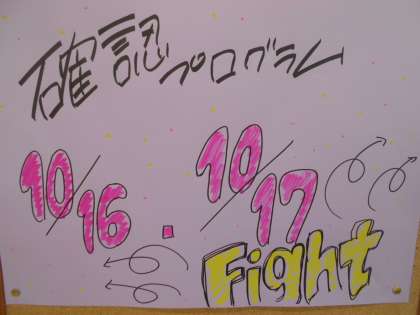 確認プログラム
10/16.10/17
Fight